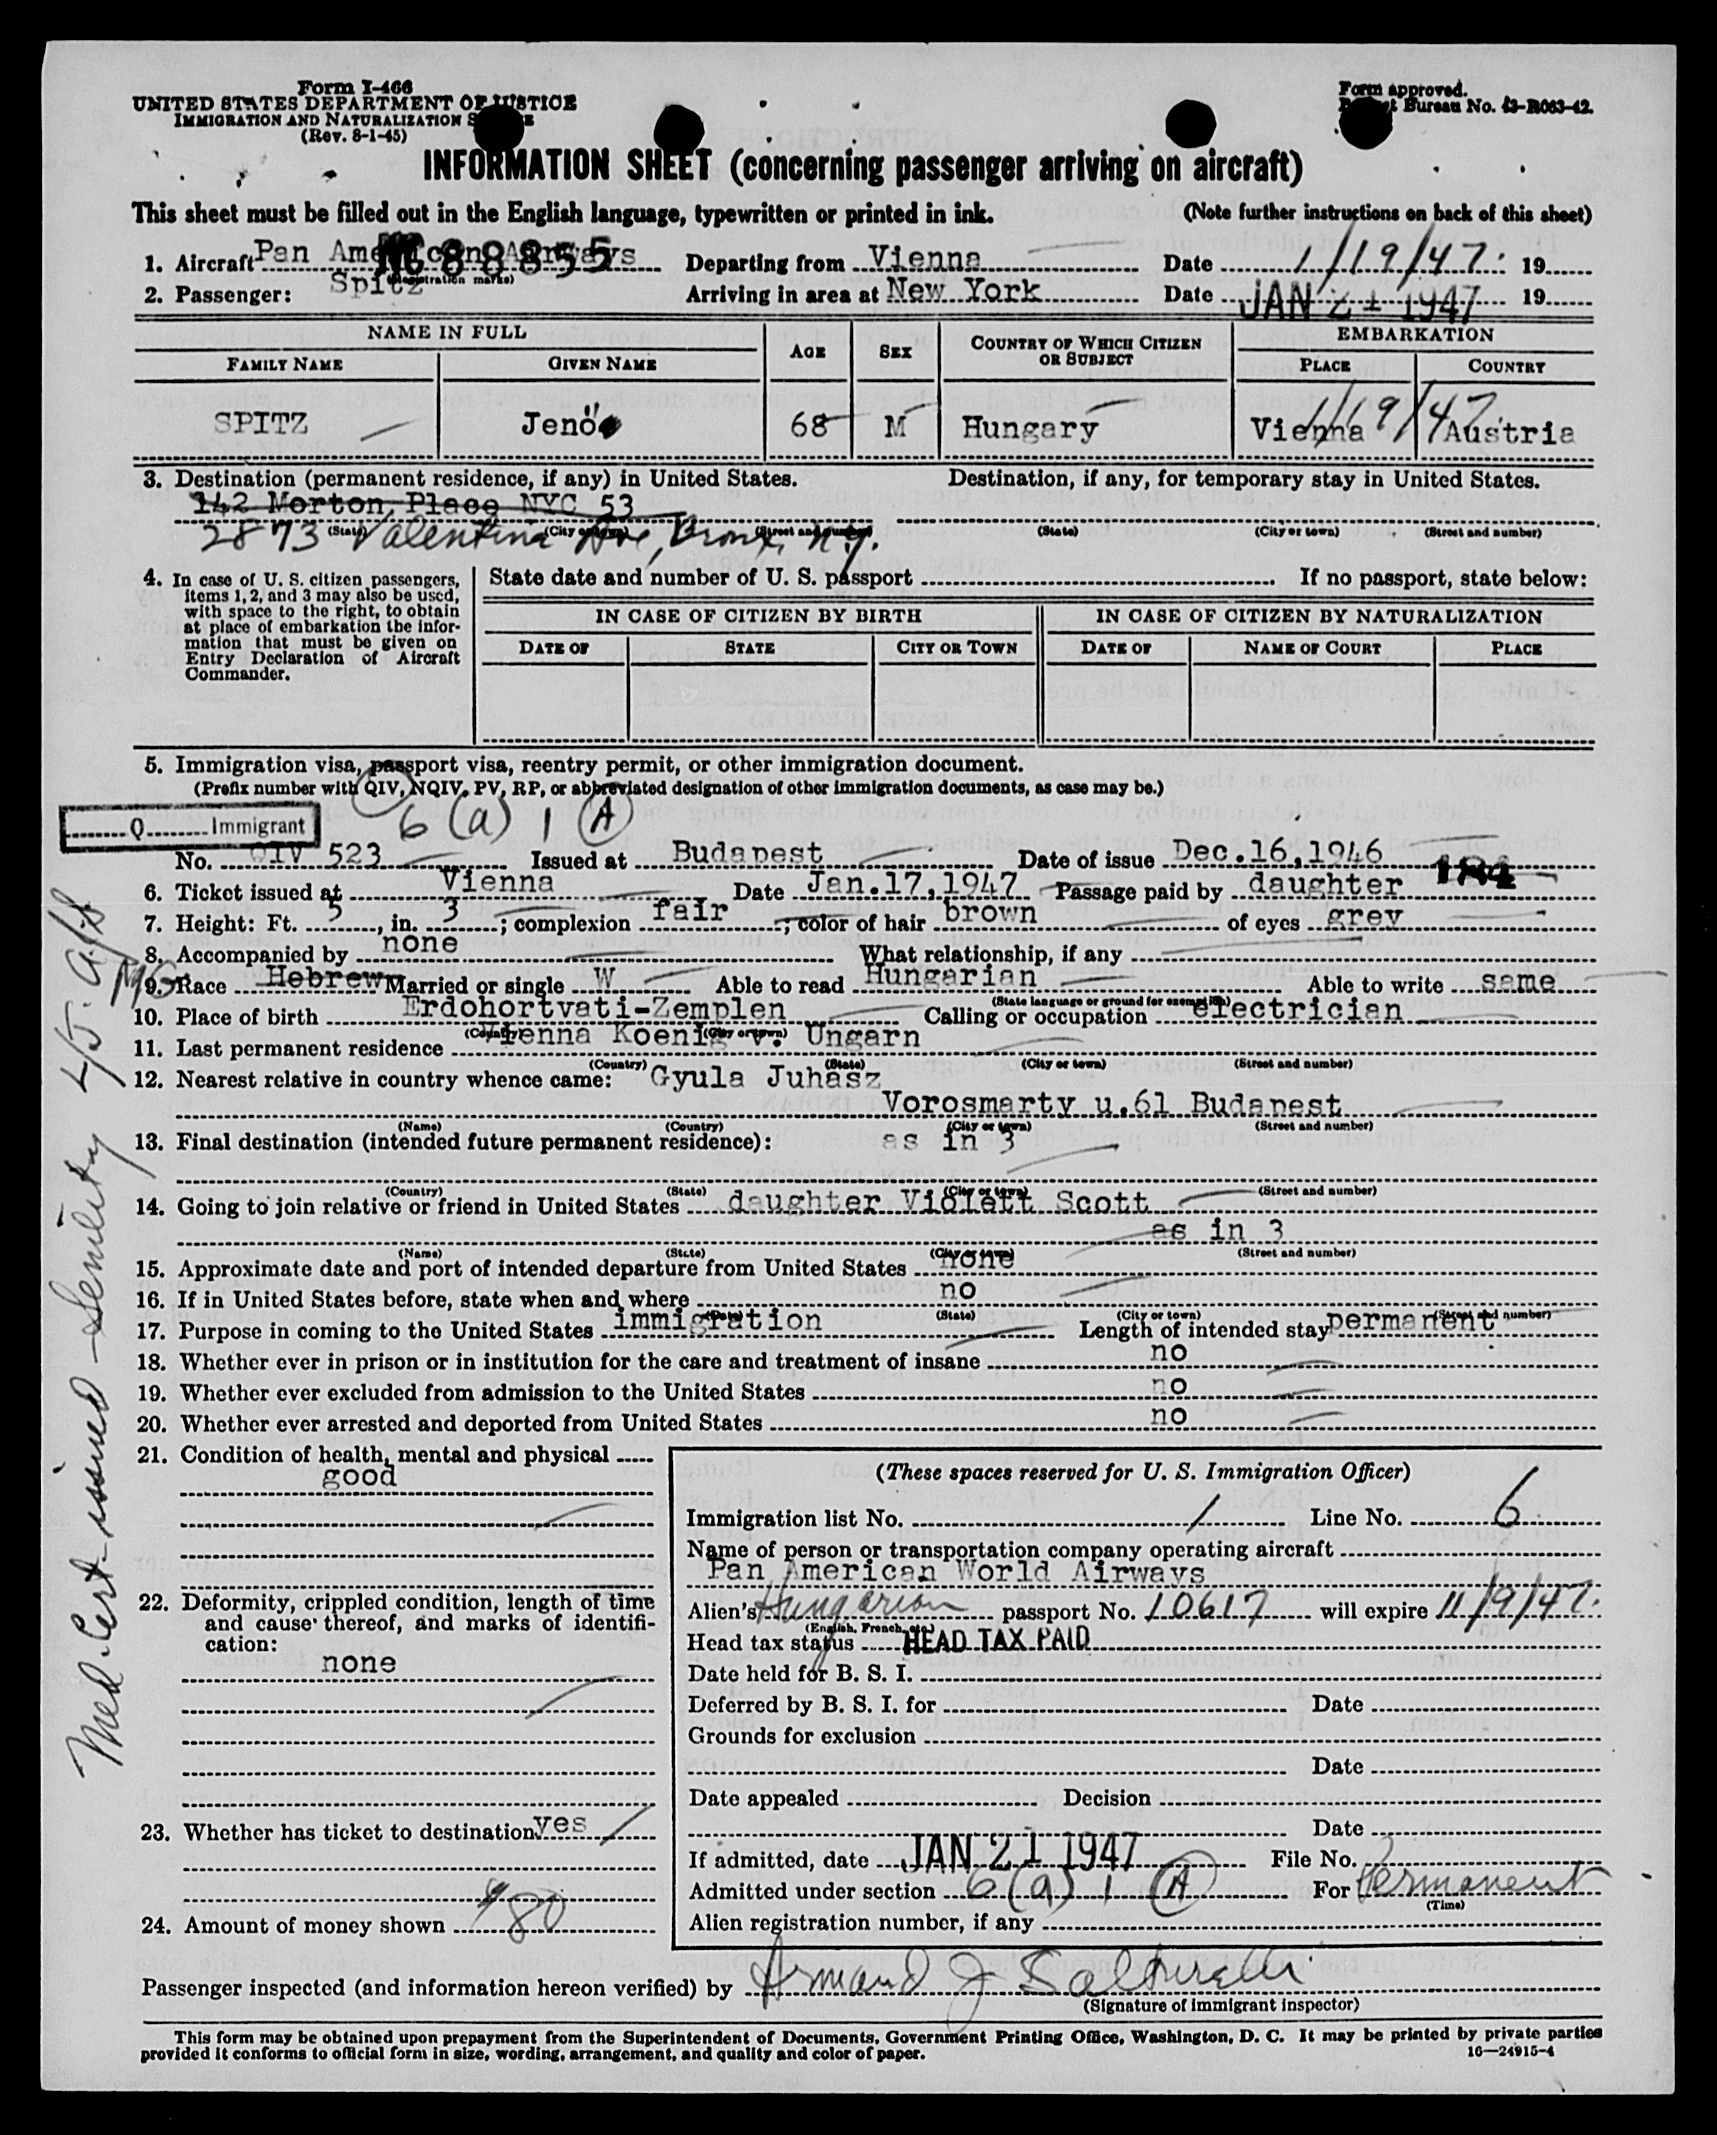 Form I-466
UNITED STATES DEPARTMENT OF JUSTICE
IMMIGRATION AND NATURALIZATION SERVICE
(Rev. 8-1-45)
Form approved.
Budget Bureau No. 43-R063-42.
INFORMATION SHEET (concerning passenger arriving on aircraft)
This sheet must be filled out in the English language, typewritten or printed in ink. (Note further instructions on back of this sheet)
1. Aircraft Pan American Airways NC 88855 (Registration marks) Departing from Vienna Date 1/19/47. 19
2. Passenger: Spitz Arriving in area at New York Date JAN 21 1947 19
NAME IN FULL AGE SEX COUNTRY OF WHICH CITIZEN OR SUBJECT EMBARKATION
FAMILY NAME GIVEN NAME PLACE COUNTRY
1/19/47.
SPITZ Jenö 68 M Hungary Vienna Austria
3. Destination (permanent residence, if any) in United States. Destination, if any, for temporary stay in United States.
142 Morton Place NYC 53
(State) (City or town) (Street and number) (State) (City or town) (Street and number)
2873 Valentine Ave, Bronx, N.Y.
4. In case of U. S. citizen passengers, items 1, 2, and 3 may also be used, with space to the right, to obtain at place of embarkation the information that must be given on Entry Declaration of Aircraft Commander.
State date and number of U. S. passport If no passport, state below:
IN CASE OF CITIZEN BY BIRTH IN CASE OF CITIZEN BY NATURALIZATION
DATE OF STATE CITY OR TOWN DATE OF NAME OF COURT PLACE
5. Immigration visa, passport visa, reentry permit, or other immigration document.
(Prefix number with QIV, NQIV, PV, RP, or abbreviated designation of other immigration documents, as case may be.)
Q Immigrant 6 (a) 1 (A)
No. QIV 523 Issued at Budapest Date of issue Dec.16,1946
6. Ticket issued at Vienna Date Jan.17,1947 Passage paid by daughter 184
7. Height: Ft. 5, in. 3; complexion fair; color of hair brown of eyes grey
8. Accompanied by none What relationship, if any
9. Race Hebrew Married or single W Able to read Hungarian Able to write same
(State language or ground for exemption)
10. Place of birth Erdohortvati-Zemplen Calling or occupation electrician
(Country) (City or town)
11. Last permanent residence Vienna Koenig v. Ungarn
(Country) (State) (City or town) (Street and number)
12. Nearest relative in country whence came: Gyula Juhász
Vorosmarty u.61 Budapest
(Name) (Country) (City or town) (Street and number)
13. Final destination (intended future permanent residence): as in 3
(Country) (State) (City or town) (Street and number)
14. Going to join relative or friend in United States daughter Violett Scott
as in 3
(Name) (State) (City or town) (Street and number)
15. Approximate date and port of intended departure from United States none
16. If in United States before, state when and where no
(Date) (State) (City or town) (Street and number)
17. Purpose in coming to the United States immigration Length of intended stay permanent
18. Whether ever in prison or in institution for the care and treatment of insane no
19. Whether ever excluded from admission to the United States no
20. Whether ever arrested and deported from United States no
21. Condition of health, mental and physical
good
22. Deformity, crippled condition, length of time and cause thereof, and marks of identification:
none
23. Whether has ticket to destination yes
24. Amount of money shown $80
(These spaces reserved for U. S. Immigration Officer)
Immigration list No. 1 Line No. 6
Name of person or transportation company operating aircraft
Pan American World Airways
Alien's Hungarian passport No. 10617 will expire 11/9/47.
(English, French, etc.)
Head tax status HEAD TAX PAID
Date held for B. S. I.
Deferred by B. S. I. for Date
Grounds for exclusion
Date
Date appealed Decision
Date
If admitted, date JAN 21 1947 File No.
Admitted under section 6(a) 1 (A) For Permanent
(Time)
Alien registration number, if any
Passenger inspected (and information hereon verified) by Armand J Salturelli
(Signature of immigrant inspector)
This form may be obtained upon prepayment from the Superintendent of Documents, Government Printing Office, Washington, D. C. It may be printed by private parties
provided it conforms to official form in size, wording, arrangement, and quality and color of paper.
16—24915-4
Med. Cert. issued Senility